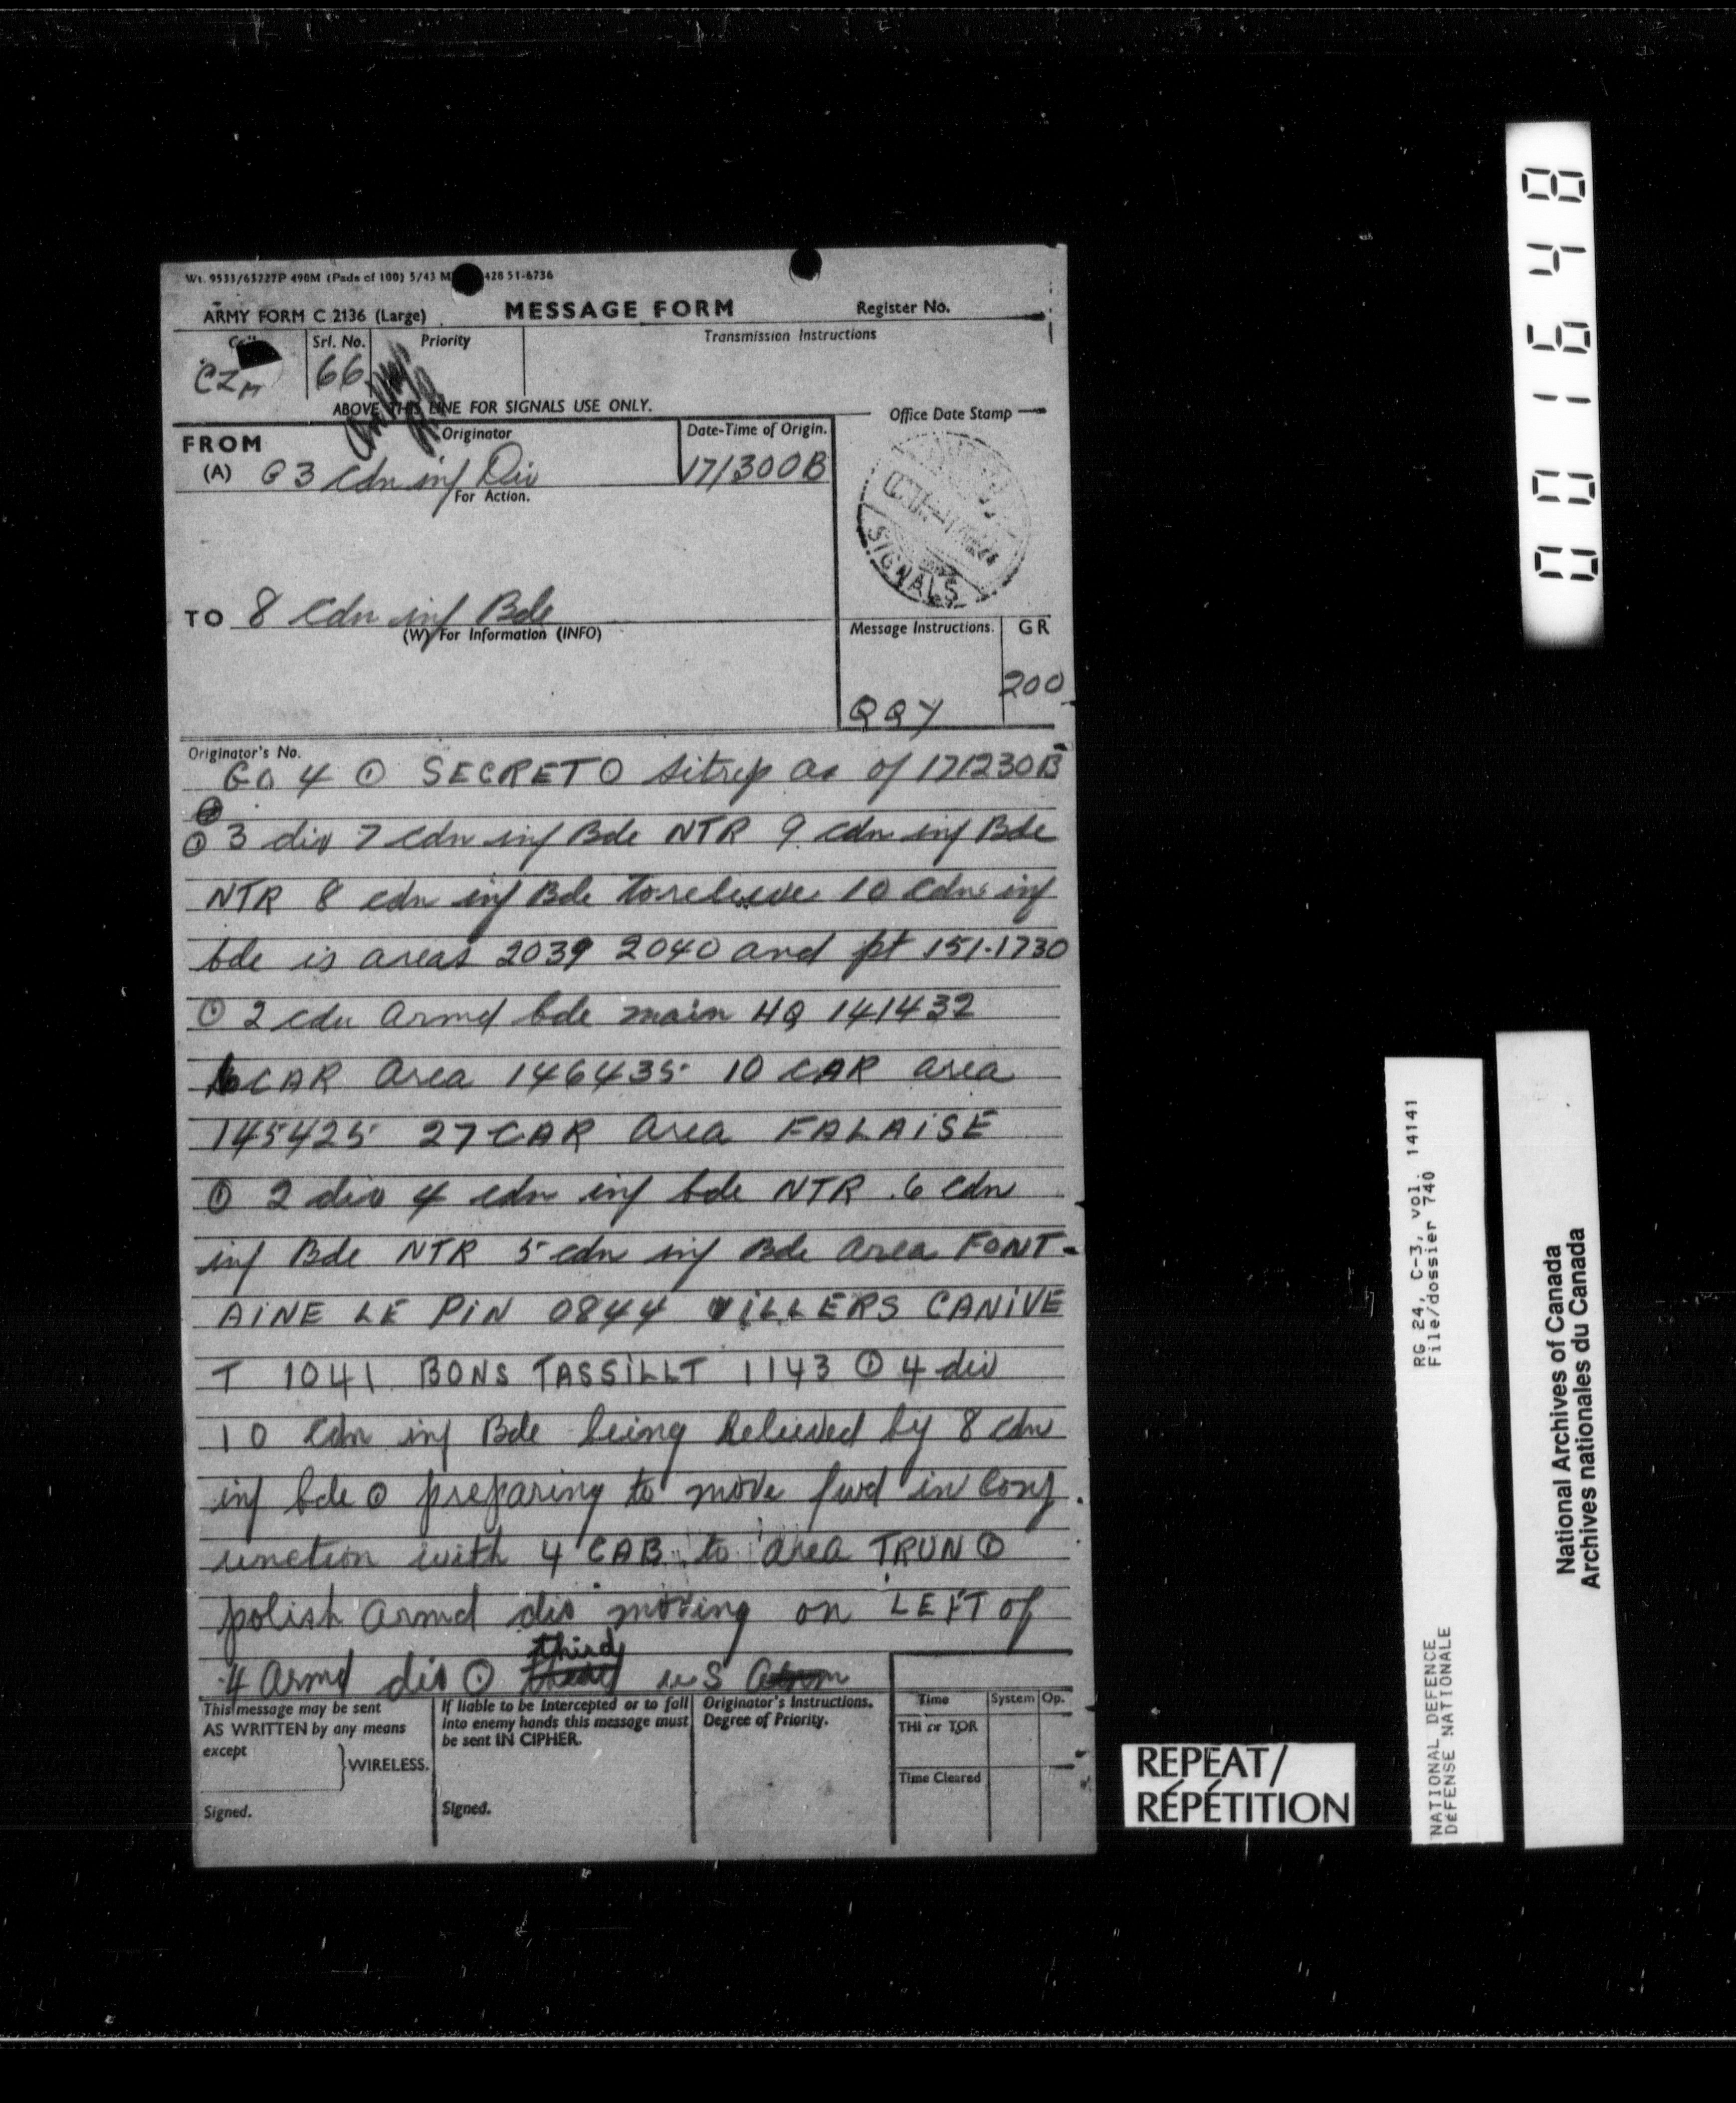 Wt. 9533/63727P 490M (Pads of 100) 5/43 M 428 51-6736
ARMY FORM C 2136 (Large) MESSAGE FORM Register No.
Srl. No. Priority Transmission Instructions
CZM 66
ABOVE THIS LINE FOR SIGNALS USE ONLY.
Office Date Stamp
FROM Originator Date-Time of Origin.
(A) G 3 Cdn inf Div 171300B
For Action.
SIGNALS
TO 8 Cdn inf Bde
(W) For Information (INFO)
Message Instructions. GR
200
QQY
Originator's No.
GO 4 ⊙ SECRET ⊙ sitrep as of 171230B
⊙ 3 div 7 cdn inf Bde NTR 9 cdn inf Bde
NTR 8 cdn inf Bde to relieve 10 cdn inf
bde is areas 2039 2040 and pt 151.1730
⊙ 2 cdn Armd bde main HQ 141432
6 CAR area 146435 10 CAR area
145425 27 CAR area FALAISE
⊙ 2 div 4 cdn inf bde NTR 6 cdn
inf Bde NTR 5 cdn inf Bde area FONT-
AINE LE PIN 0844 VILLERS CANIVE
T 1041 BONS TASSILLT 1143 ⊙ 4 div
10 Cdn inf Bde being relieved by 8 cdn
inf bde ⊙ preparing to move fwd in conj
unction with 4 CAB to area TRUN ⊙
polish Armd div moving on LEFT of
third
4 Armd div ⊙ US
This message may be sent
AS WRITTEN by any means
except
WIRELESS.
Signed.
If liable to be intercepted or to fall
into enemy hands this message must
be sent IN CIPHER.
Signed.
Originator's Instructions.
Degree of Priority.
Time System Op.
THI or TOR
Time Cleared
REPEAT/
RÉPÉTITION
001648
RG 24, C-3, vol. 14141
File/dossier 740
NATIONAL DEFENCE
DÉFENSE NATIONALE
National Archives of Canada
Archives nationales du Canada